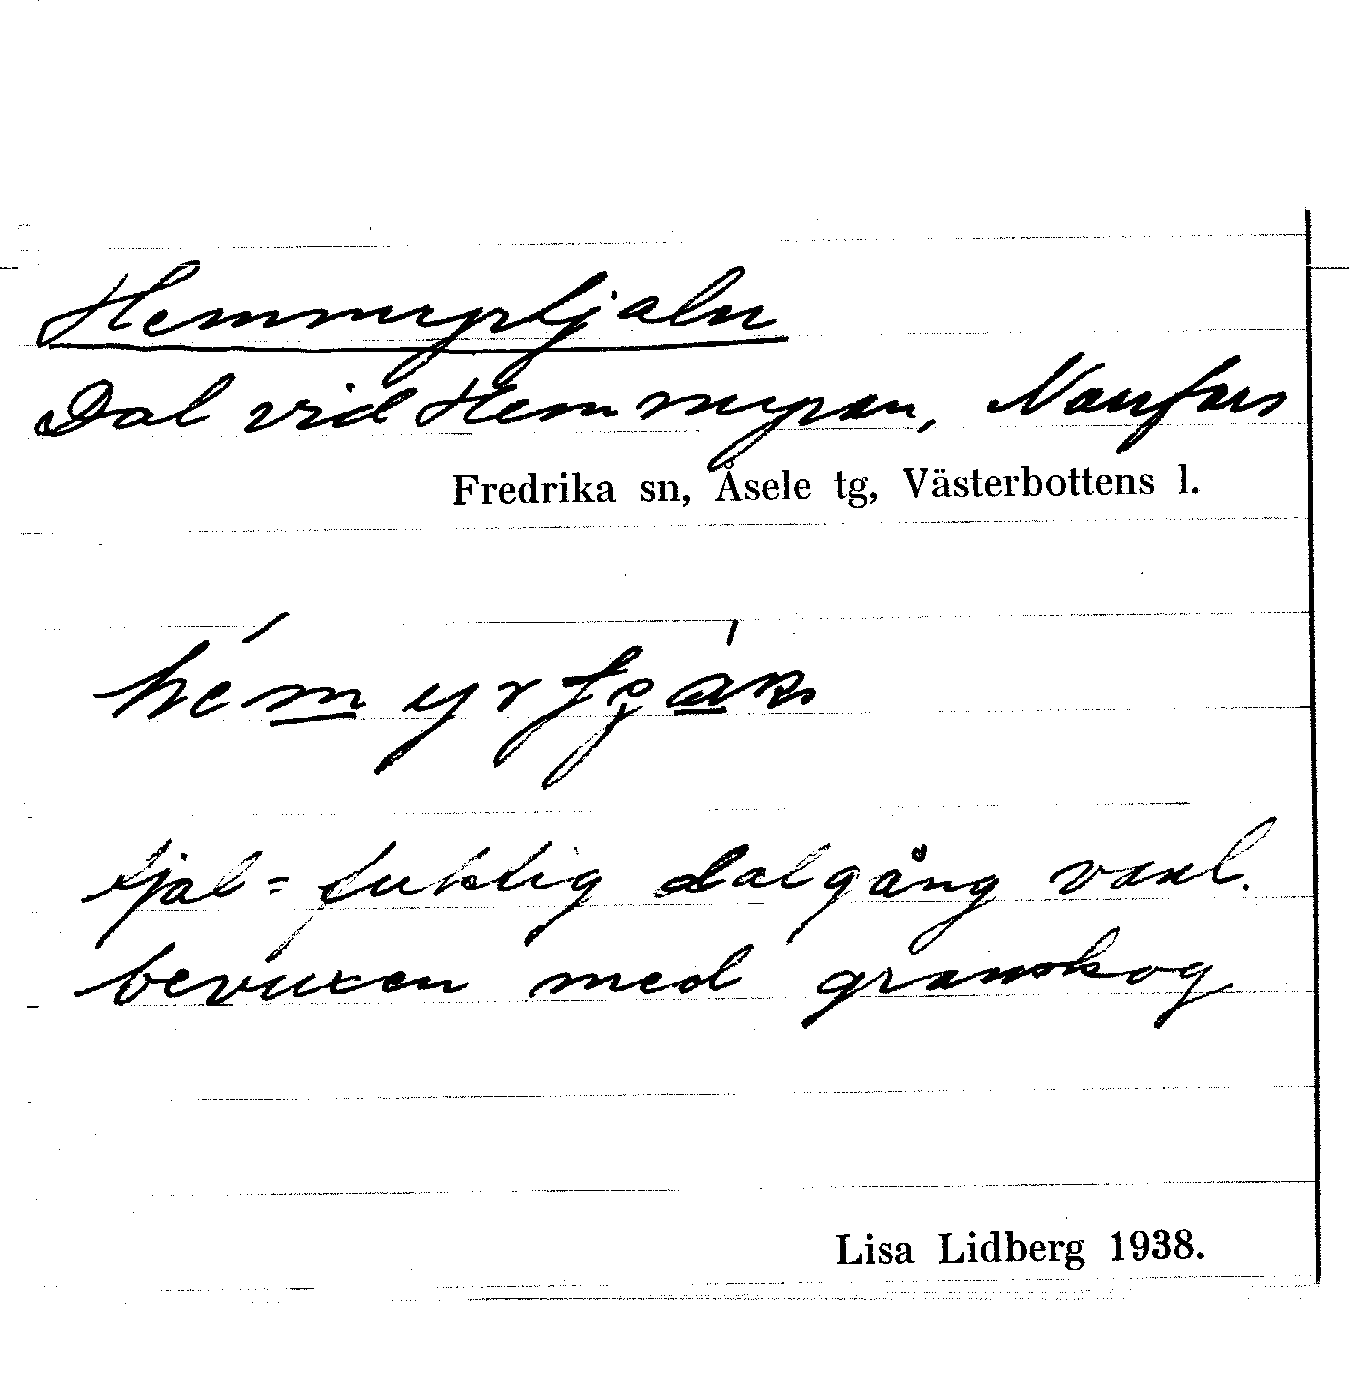 Hemmyrtjaln
Dal vid Hemmyran,
Fredrika sn, Åsele tg, Västerbottens l.
tjal = fuktig dalgång vanl.
bevuxen med granskog
Lisa Lidberg 1938.